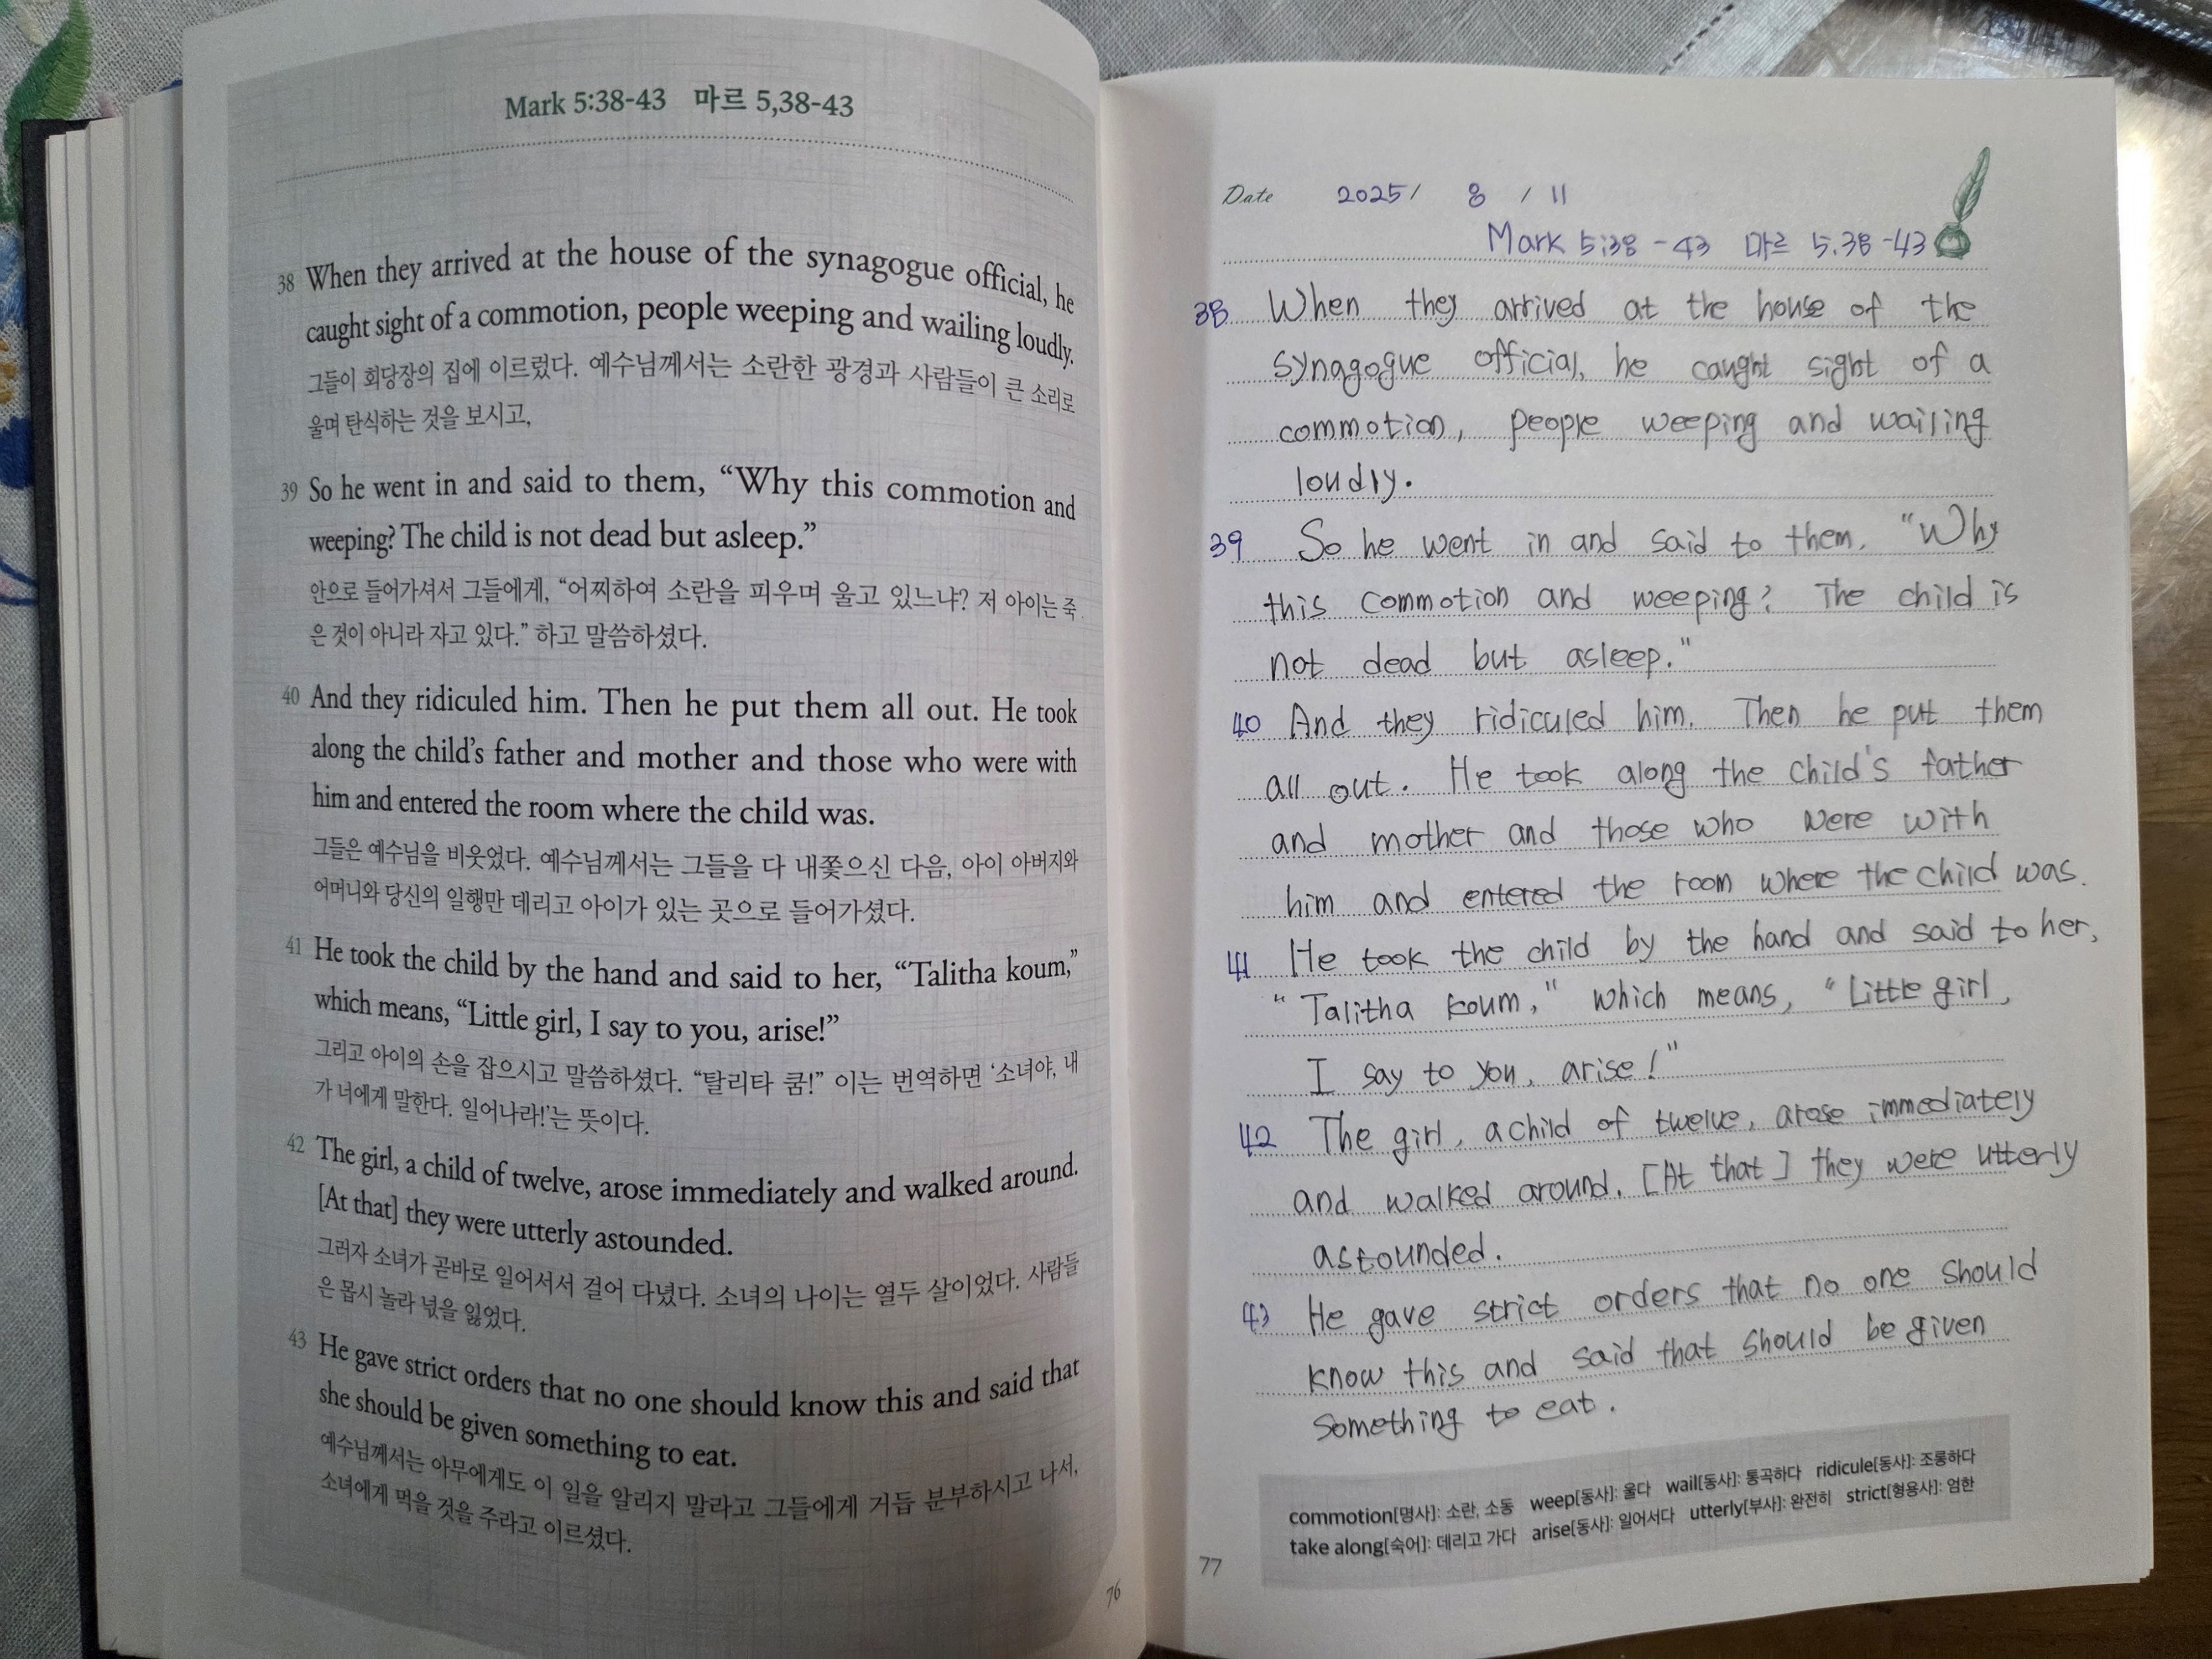 Mark 5:38-43 마르 5,38-43
38 When they arrived at the house of the synagogue official, he
caught sight of a commotion, people weeping and wailing loudly.
그들이 회당장의 집에 이르렀다. 예수님께서는 소란한 광경과 사람들이 큰 소리로
울며 탄식하는 것을 보시고,
39 So he went in and said to them, “Why this commotion and
weeping? The child is not dead but asleep.”
안으로 들어가셔서 그들에게, “어찌하여 소란을 피우며 울고 있느냐? 저 아이는 죽
은 것이 아니라 자고 있다.” 하고 말씀하셨다.
40 And they ridiculed him. Then he put them all out. He took
along the child’s father and mother and those who were with
him and entered the room where the child was.
그들은 예수님을 비웃었다. 예수님께서는 그들을 다 내쫓으신 다음, 아이 아버지와
어머니와 당신의 일행만 데리고 아이가 있는 곳으로 들어가셨다.
41 He took the child by the hand and said to her, “Talitha koum,”
which means, “Little girl, I say to you, arise!”
그리고 아이의 손을 잡으시고 말씀하셨다. “탈리타 쿰!” 이는 번역하면 ‘소녀야, 내
가 너에게 말한다. 일어나라!’는 뜻이다.
42 The girl, a child of twelve, arose immediately and walked around.
[At that] they were utterly astounded.
그러자 소녀가 곧바로 일어서서 걸어 다녔다. 소녀의 나이는 열두 살이었다. 사람들
은 몹시 놀라 넋을 잃었다.
43 He gave strict orders that no one should know this and said that
she should be given something to eat.
예수님께서는 아무에게도 이 일을 알리지 말라고 그들에게 거듭 분부하시고 나서,
소녀에게 먹을 것을 주라고 이르셨다.
76
Date 2025/ 8 / 11
Mark 5:38-43 마르 5.38-43
38 When they arrived at the house of the
synagogue official, he caught sight of a
commotion, people weeping and wailing
loudly.
39 So he went in and said to them. "Why
this commotion and weeping? The child is
not dead but asleep."
40 And they ridiculed him. Then he put them
all out. He took along the child's father
and mother and those who were with
him and entered the room where the child was.
41 He took the child by the hand and said to her,
"Talitha koum," which means, "Little girl,
I say to you, arise!"
42 The girl, a child of twelve, arose immediately
and walked around. [At that] they were utterly
astounded.
43 He gave strict orders that no one should
know this and said that should be given
something to eat.
commotion[명사]: 소란, 소동 weep[동사]: 울다 wail[동사]: 통곡하다 ridicule[동사]: 조롱하다
take along[숙어]: 데리고 가다 arise[동사]: 일어서다 utterly[부사]: 완전히 strict[형용사]: 엄한
77